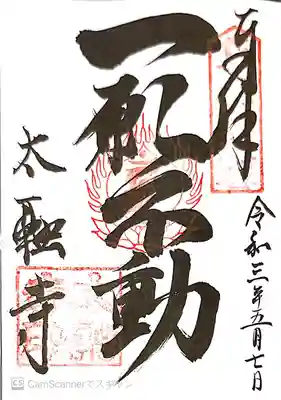 奉拝
令和三年五月七日
一願不動
太融寺
CS CamScannerでスキャン